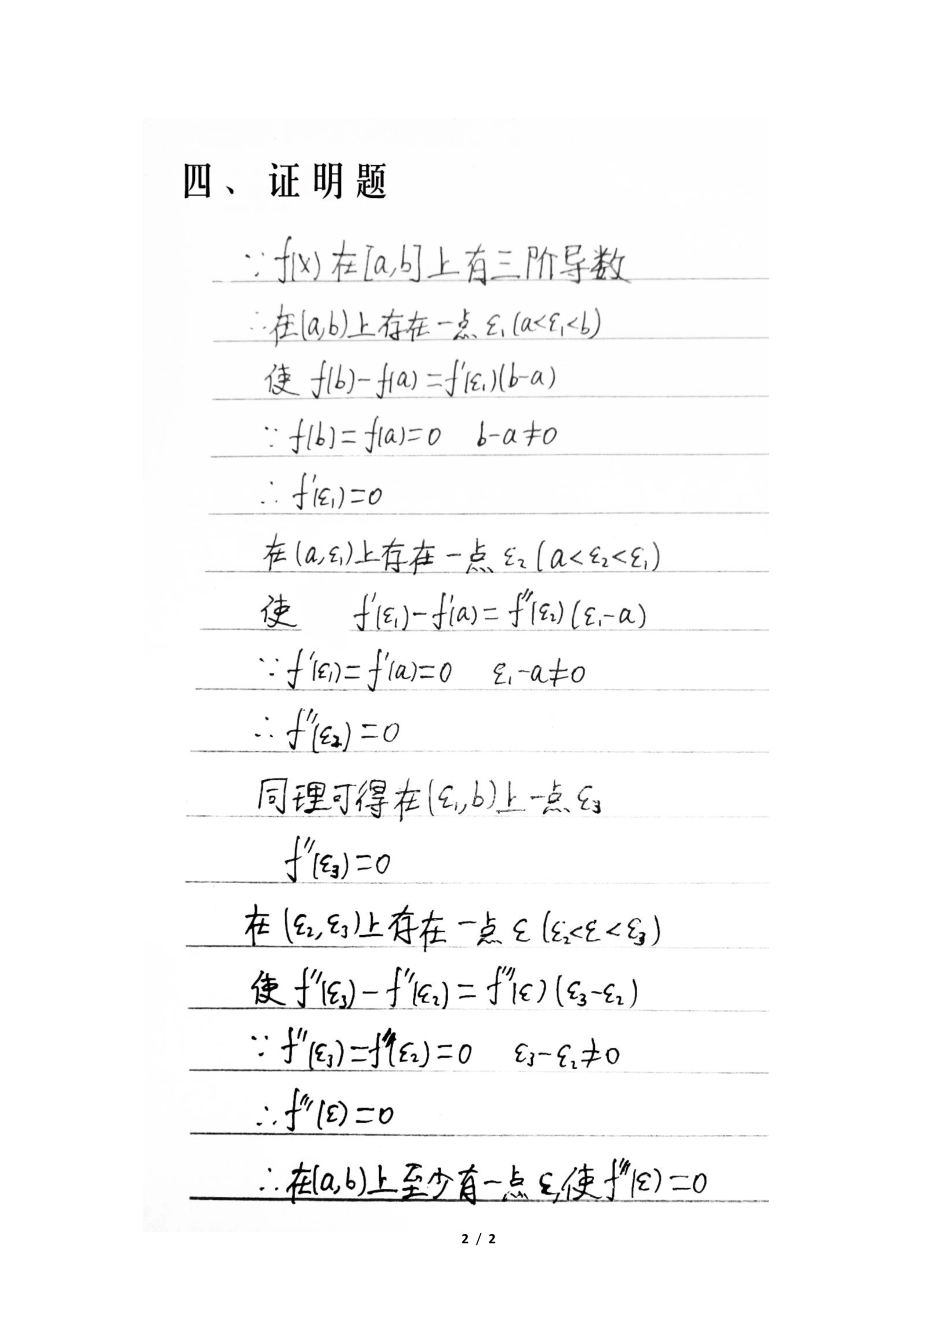 四、证明题
∵f(x)在[a,b]上有三阶导数
∴在(a,b)上存在一点ε₁(a<ε₁<b)
使 f(b)-f(a)=f'(ε₁)(b-a)
∵f(b)=f(a)=0 b-a≠0
∴f'(ε₁)=0
在(a,ε₁)上存在一点ε₂(a<ε₂<ε₁)
使 f'(ε₁)-f'(a)=f''(ε₂)(ε₁-a)
∵f'(ε₁)=f'(a)=0 ε₁-a≠0
∴f''(ε₂)=0
同理可得在(ε₁,b)上一点ε₃
f''(ε₃)=0
在(ε₂,ε₃)上存在一点ε(ε₂<ε<ε₃)
使f''(ε₃)-f''(ε₂)=f'''(ε)(ε₃-ε₂)
∵f''(ε₃)=f''(ε₂)=0 ε₃-ε₂≠0
∴f'''(ε)=0
∴在(a,b)上至少有一点ε,使f'''(ε)=0
2 / 2